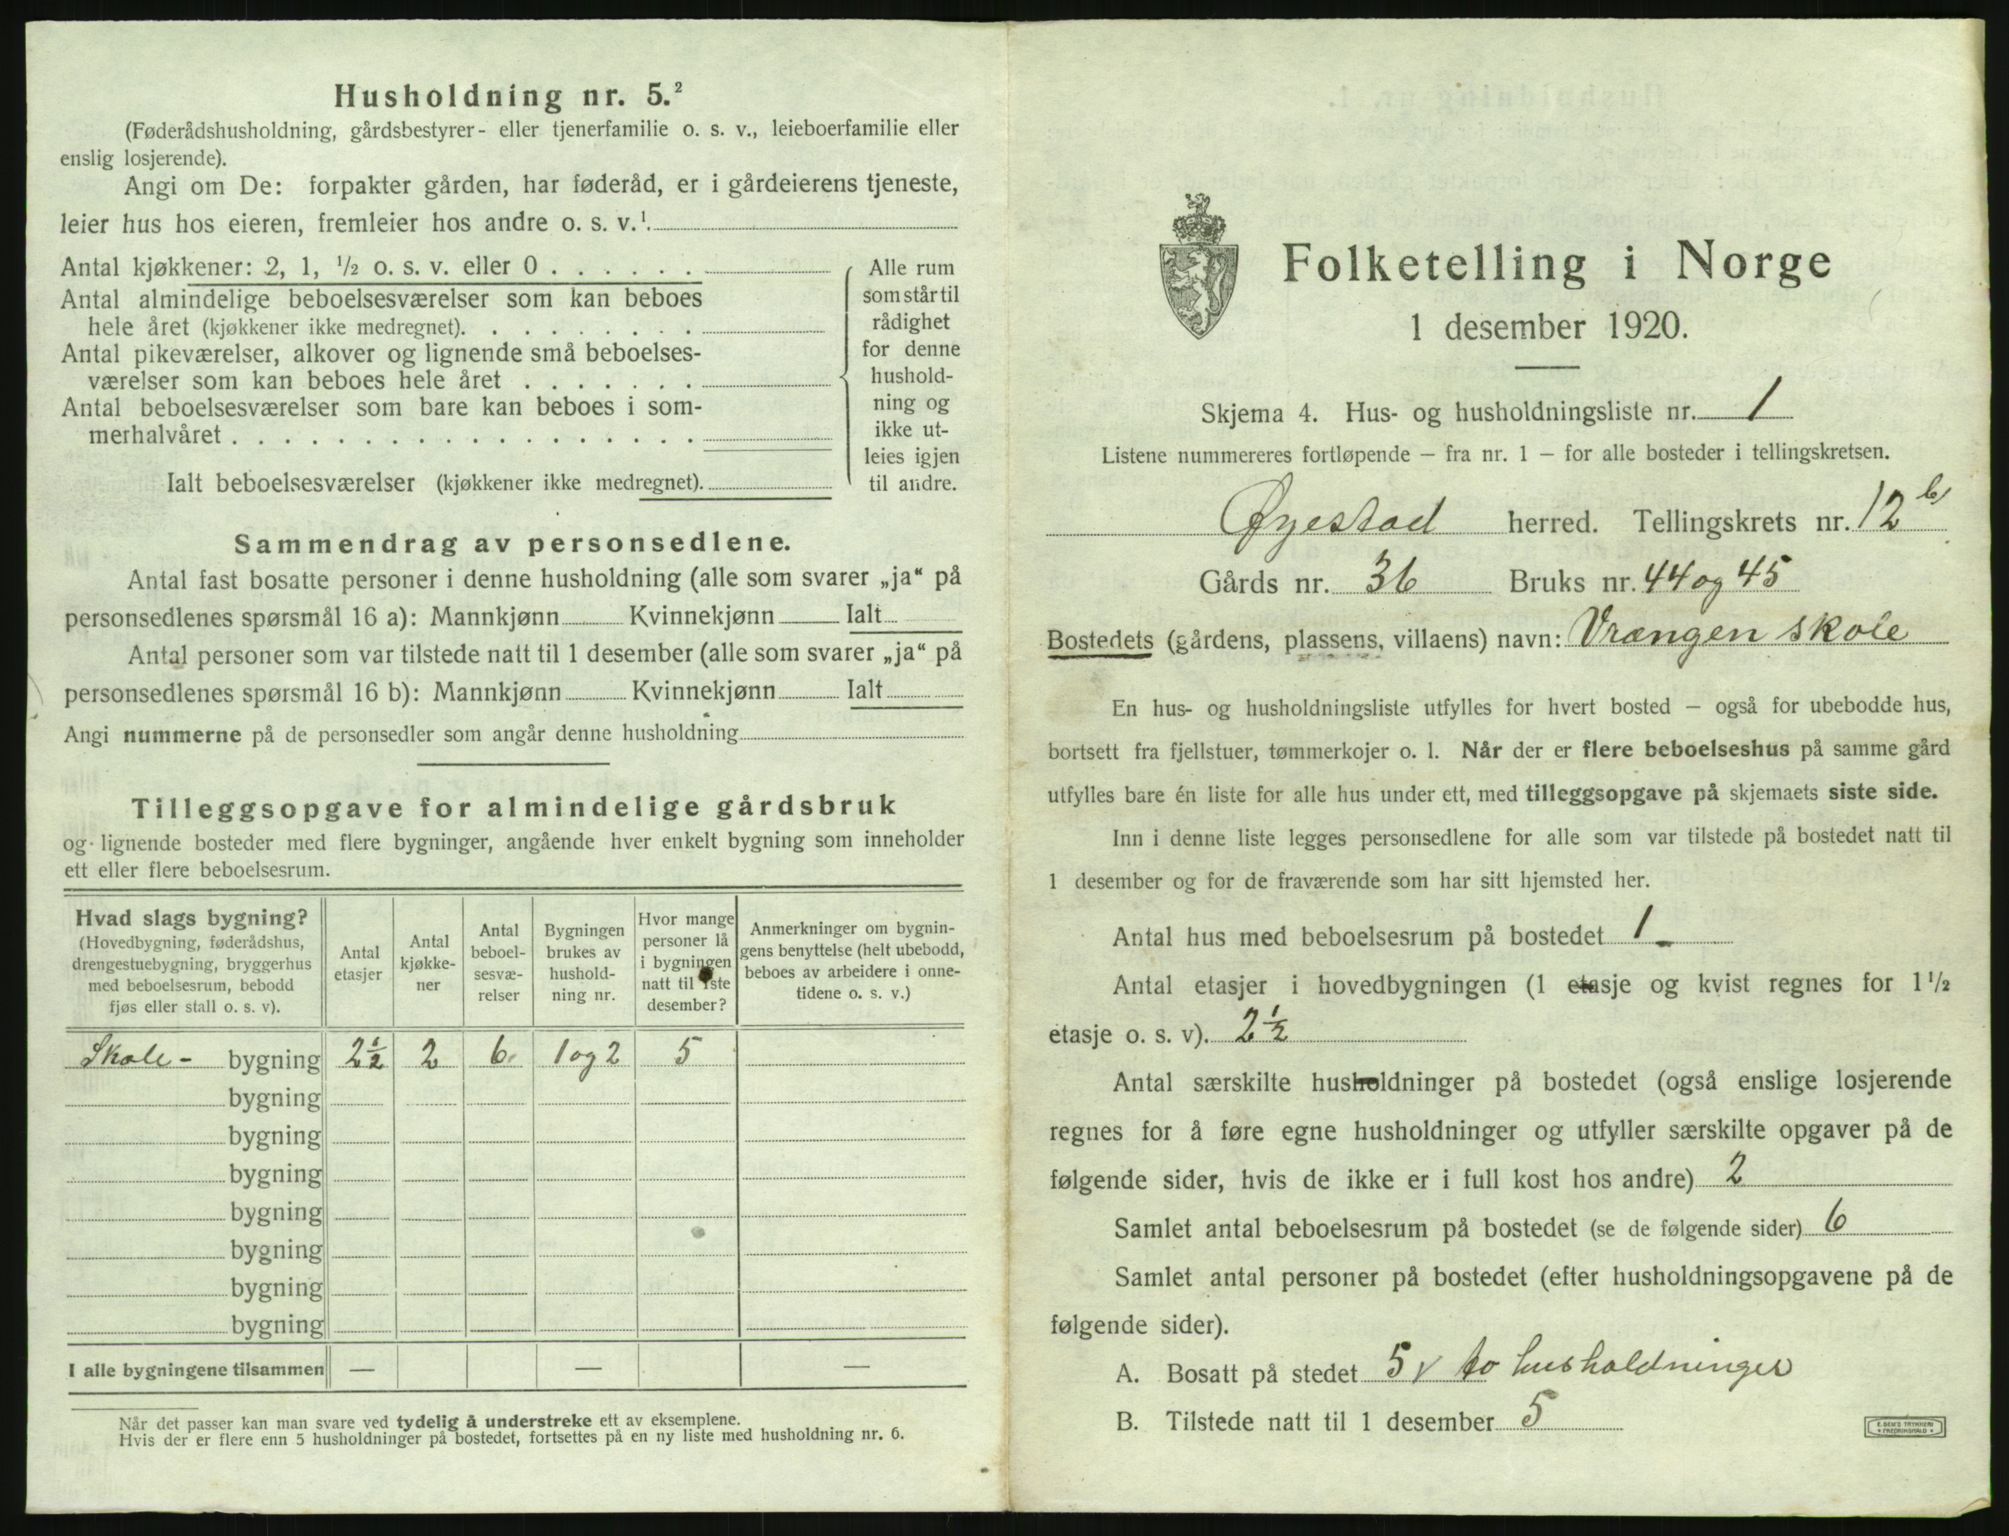 Husholdning nr. 5.²
(Føderådshusholdning, gårdsbestyrer- eller tjenerfamilie o. s. v., leieboerfamilie eller
enslig losjerende).
Angi om De: forpakter gården, har føderåd, er i gårdeierens tjeneste,
leier hus hos eieren, fremleier hos andre o. s. v.¹
Antal kjøkkener: 2, 1, ½ o. s. v. eller 0
Antal almindelige beboelsesværelser som kan beboes
hele året (kjøkkener ikke medregnet).
Antal pikeværelser, alkover og lignende små beboelses-
værelser som kan beboes hele året
Antal beboelsesværelser som bare kan beboes i som-
merhalvåret
Ialt beboelsesværelser (kjøkkener ikke medregnet).
Alle rum
som står til
rådighet
for denne
hushold-
ning og
ikke ut-
leies igjen
til andre.
Sammendrag av personsedlene.
Antal fast bosatte personer i denne husholdning (alle som svarer „ja“ på
personsedlenes spørsmål 16 a): Mannkjønn Kvinnekjønn Ialt
Antal personer som var tilstede natt til 1 desember (alle som svarer „ja“ på
personsedlenes spørsmål 16 b): Mannkjønn Kvinnekjønn Ialt
Angi nummerne på de personsedler som angår denne husholdning
Tilleggsopgave for almindelige gårdsbruk
og lignende bosteder med flere bygninger, angående hver enkelt bygning som inneholder
ett eller flere beboelsesrum.
Hvad slags bygning?
(Hovedbygning, føderådshus,
drengestuebygning, bryggerhus
med beboelsesrum, bebodd
fjøs eller stall o. s. v).
Antal
etasjer
Antal
kjøkke-
ner
Antal
beboel-
sesvæ-
relser
Bygningen
brukes av
hushold-
ning nr.
Hvor mange
personer lå
i bygningen
natt til 1ste
desember?
Anmerkninger om bygnin-
gens benyttelse (helt ubebodd,
beboes av arbeidere i onne-
tidene o. s. v.)
Skole- bygning 2½ 2 6 1 og 2 5
bygning
bygning
bygning
bygning
bygning
bygning
bygning
I alle bygningene tilsammen — — —
Når det passer kan man svare ved tydelig å understreke ett av eksemplene.
Hvis der er flere enn 5 husholdninger på bostedet, fortsettes på en ny liste med husholdning nr. 6.
Folketelling i Norge
1 desember 1920.
Skjema 4. Hus- og husholdningsliste nr. 1
Listene nummereres fortløpende – fra nr. 1 – for alle bosteder i tellingskretsen.
Øyestad herred. Tellingskrets nr. 12 b
Gårds nr. 36 Bruks nr. 44 og 45
Bostedets (gårdens, plassens, villaens) navn: Vrængen skole
En hus- og husholdningsliste utfylles for hvert bosted – også for ubebodde hus,
bortsett fra fjellstuer, tømmerkojer o. l. Når der er flere beboelseshus på samme gård
utfylles bare én liste for alle hus under ett, med tilleggsopgave på skjemaets siste side.
Inn i denne liste legges personsedlene for alle som var tilstede på bostedet natt til
1 desember og for de fraværende som har sitt hjemsted her.
Antal hus med beboelsesrum på bostedet 1
Antal etasjer i hovedbygningen (1 etasje og kvist regnes for 1½
etasje o. s. v). 2½
Antal særskilte husholdninger på bostedet (også enslige losjerende
regnes for å føre egne husholdninger og utfyller særskilte opgaver på de
følgende sider, hvis de ikke er i full kost hos andre) 2
Samlet antal beboelsesrum på bostedet (se de følgende sider) 6
Samlet antal personer på bostedet (efter husholdningsopgavene på de
følgende sider).
A. Bosatt på stedet 5 v to husholdninger
B. Tilstede natt til 1 desember 5
E. SEM'S TRYKKERI
FREDRIKSHALD